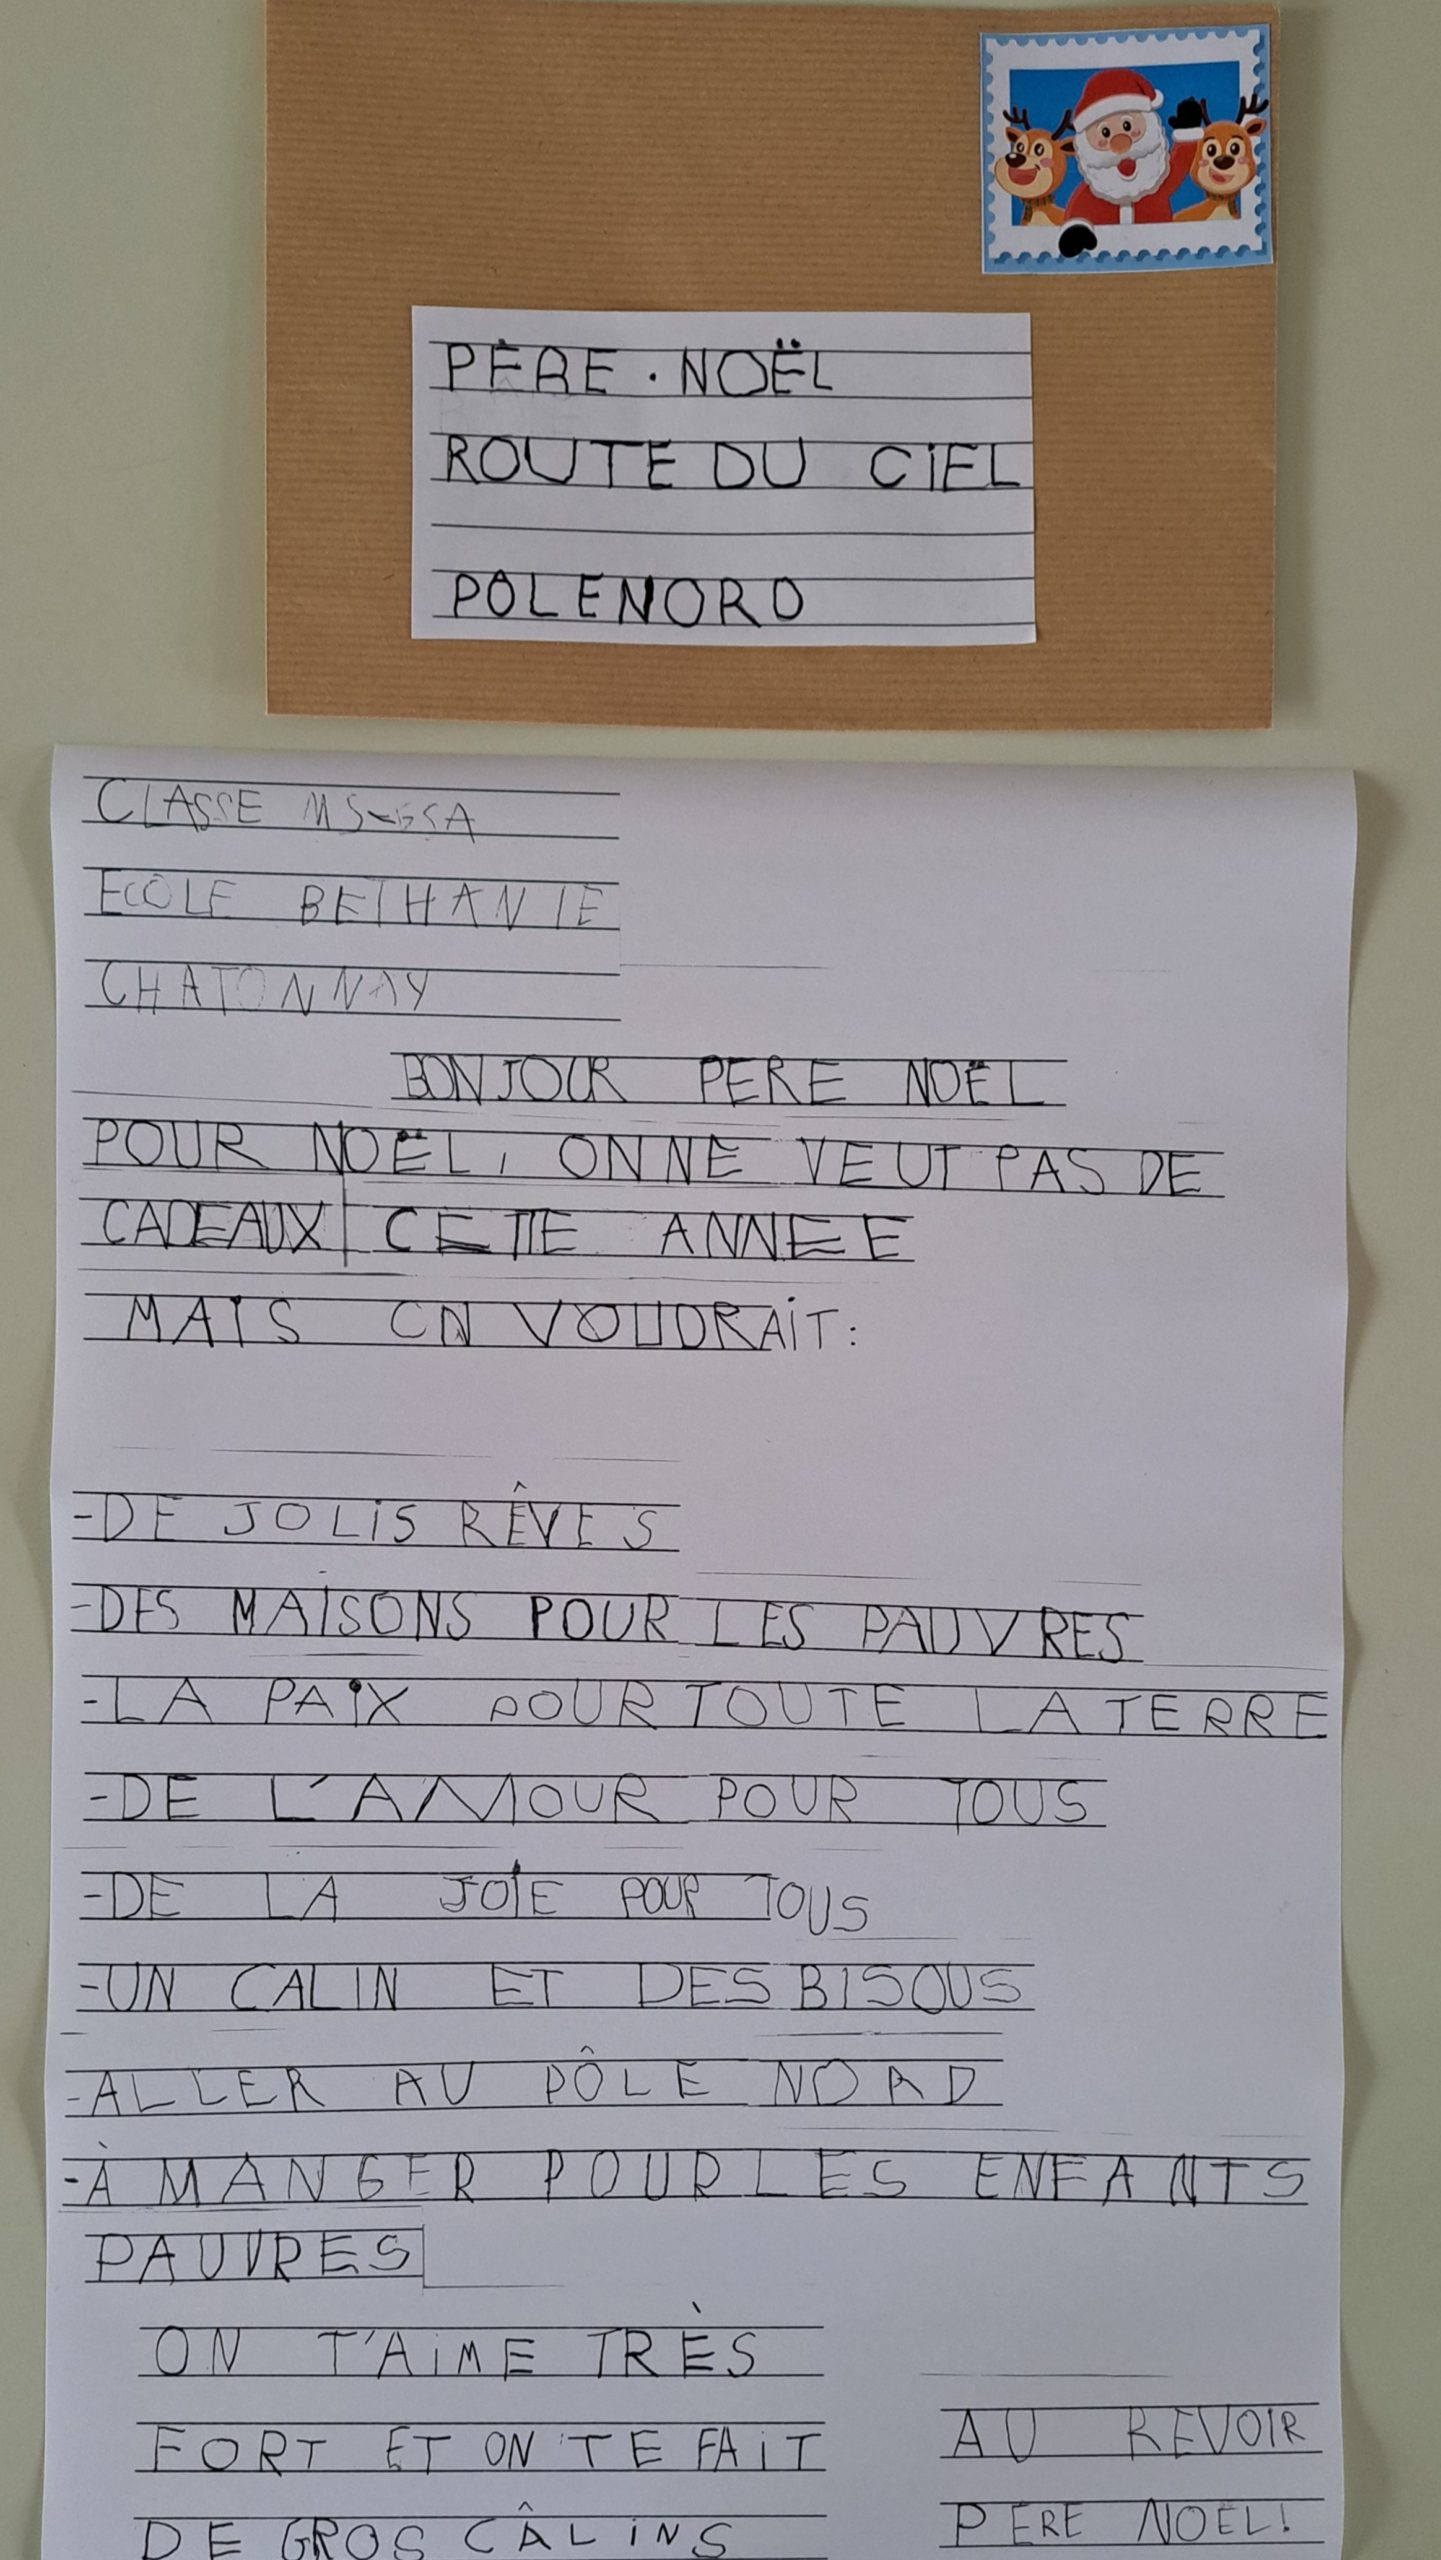 PÈRE . NOËL
ROUTE DU CIEL
PÔLE NORD
CLASSE MS-GSA
ECOLE BETHANIE
CHATONNAY
BONJOUR PERE NOËL
POUR NOËL, ON NE VEUT PAS DE
CADEAUX CETTE ANNEE
MAIS ON VOUDRAIT:
-DE JOLIS RÊVES
-DES MAISONS POUR LES PAUVRES
-LA PAIX POUR TOUTE LA TERRE
-DE L'AMOUR POUR TOUS
-DE LA JOIE POUR TOUS
-UN CALIN ET DES BISOUS
-ALLER AU PÔLE NORD
-À MANGER POUR LES ENFANTS
PAUVRES
ON T'AIME TRÈS
FORT ET ON TE FAIT
DE GROS CÂLINS
AU REVOIR
PERE NOËL!